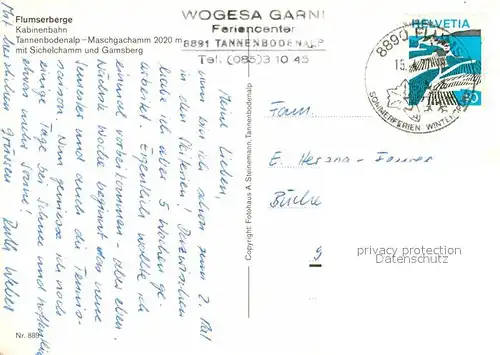 Flumserberge
Kabinenbahn
Tannenbodenalp – Maschgachamm 2020 m
mit Sichelchamm und Gamsberg
WOGESA GARNI
Feriencenter
8891 TANNENBODENALP
Tel. (085) 3 10 45
HELVETIA
8890 FLUMS
15.
SOMMERFERIEN WINTER
Meine Lieben,
nun bin ich schon zum 2. Mal
in den Skiferien! Dazwischen
habe ich aber 5 Wochen ge-
arbeitet. Eigentlich wollte ich
einmal vorbeikommen – aber eben.
Nächste Woche beginnt das neue
Semester und auch die Tennis-
saison. Nun geniesse ich noch
einige Tage bei Schnee und hoffentlich
etwas mehr Sonne!
Mit herzlichen Grüssen Ruth Weber
Copyright Fotohaus A. Steinemann, Tannenbodenalp
Fam.
E.
Buchs
9
privacy protection
Datenschutz
Nr. 889